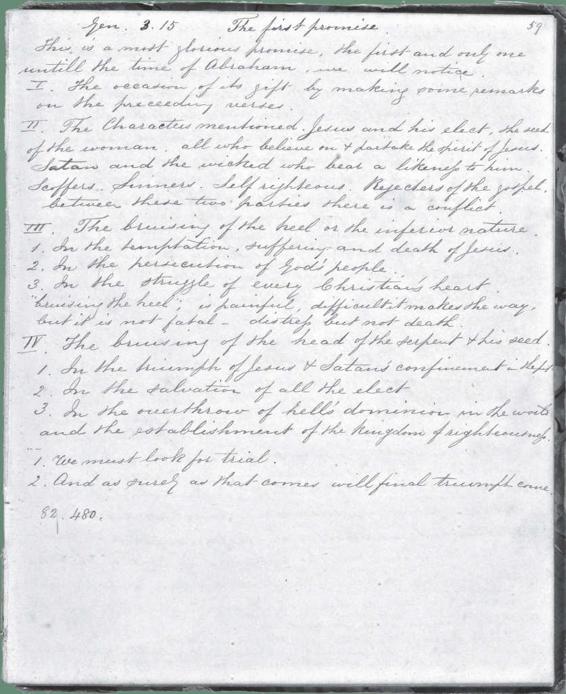 Gen. 3.15 The first promise. 59
This is a most glorious promise, the first and only one
untill the time of Abraham, we will notice.
I. The occasion of its gift by making some remarks
on the preceeding verses.
II. The Characters mentioned. Jesus and his elect, the seed
of the woman. all who believe on & partake the spirit of Jesus.
Satan and the wicked who bear a likeness to him.
Scoffers. Sinners. Self righteous. Rejecters of the gospel.
between these two parties there is a conflict.
III. The bruising of the heel or the inferior nature.
1. In the temptation, suffering and death of Jesus.
2. In the persecution of God's people.
3. In the struggle of every Christian's heart.
"bruising the heel", is painful, difficult it makes the way,
but it is not fatal - distress but not death.
IV. The bruising of the head of the serpent & his seed.
1. In the triumph of Jesus & Satan's confinement in the pit
2. In the salvation of all the elect
3. In the overthrow of hell's dominion in the world
and the establishment of the Kingdom of righteousness.
1. We must look for trial.
2. And as surely as that comes will final triumph come.
82. 480.